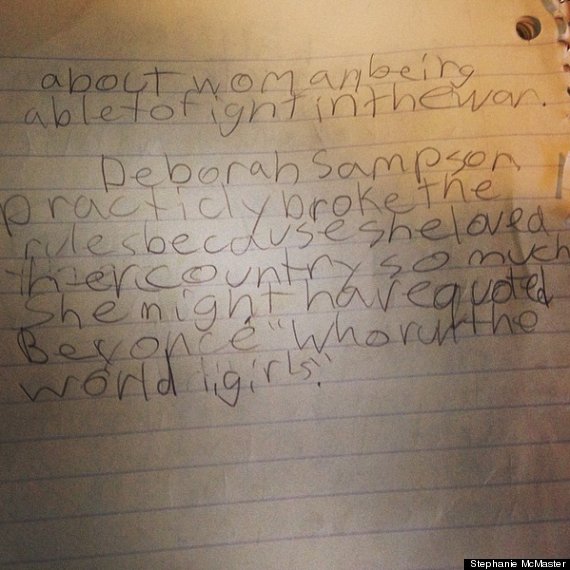 about woman being
able to fight in the war.
Deborah Sampson
practicly broke the
rules because she loved
hier country so much
She might have quoted
Beyoncé "Who run the
world ¡girls".
Stephanie McMaster